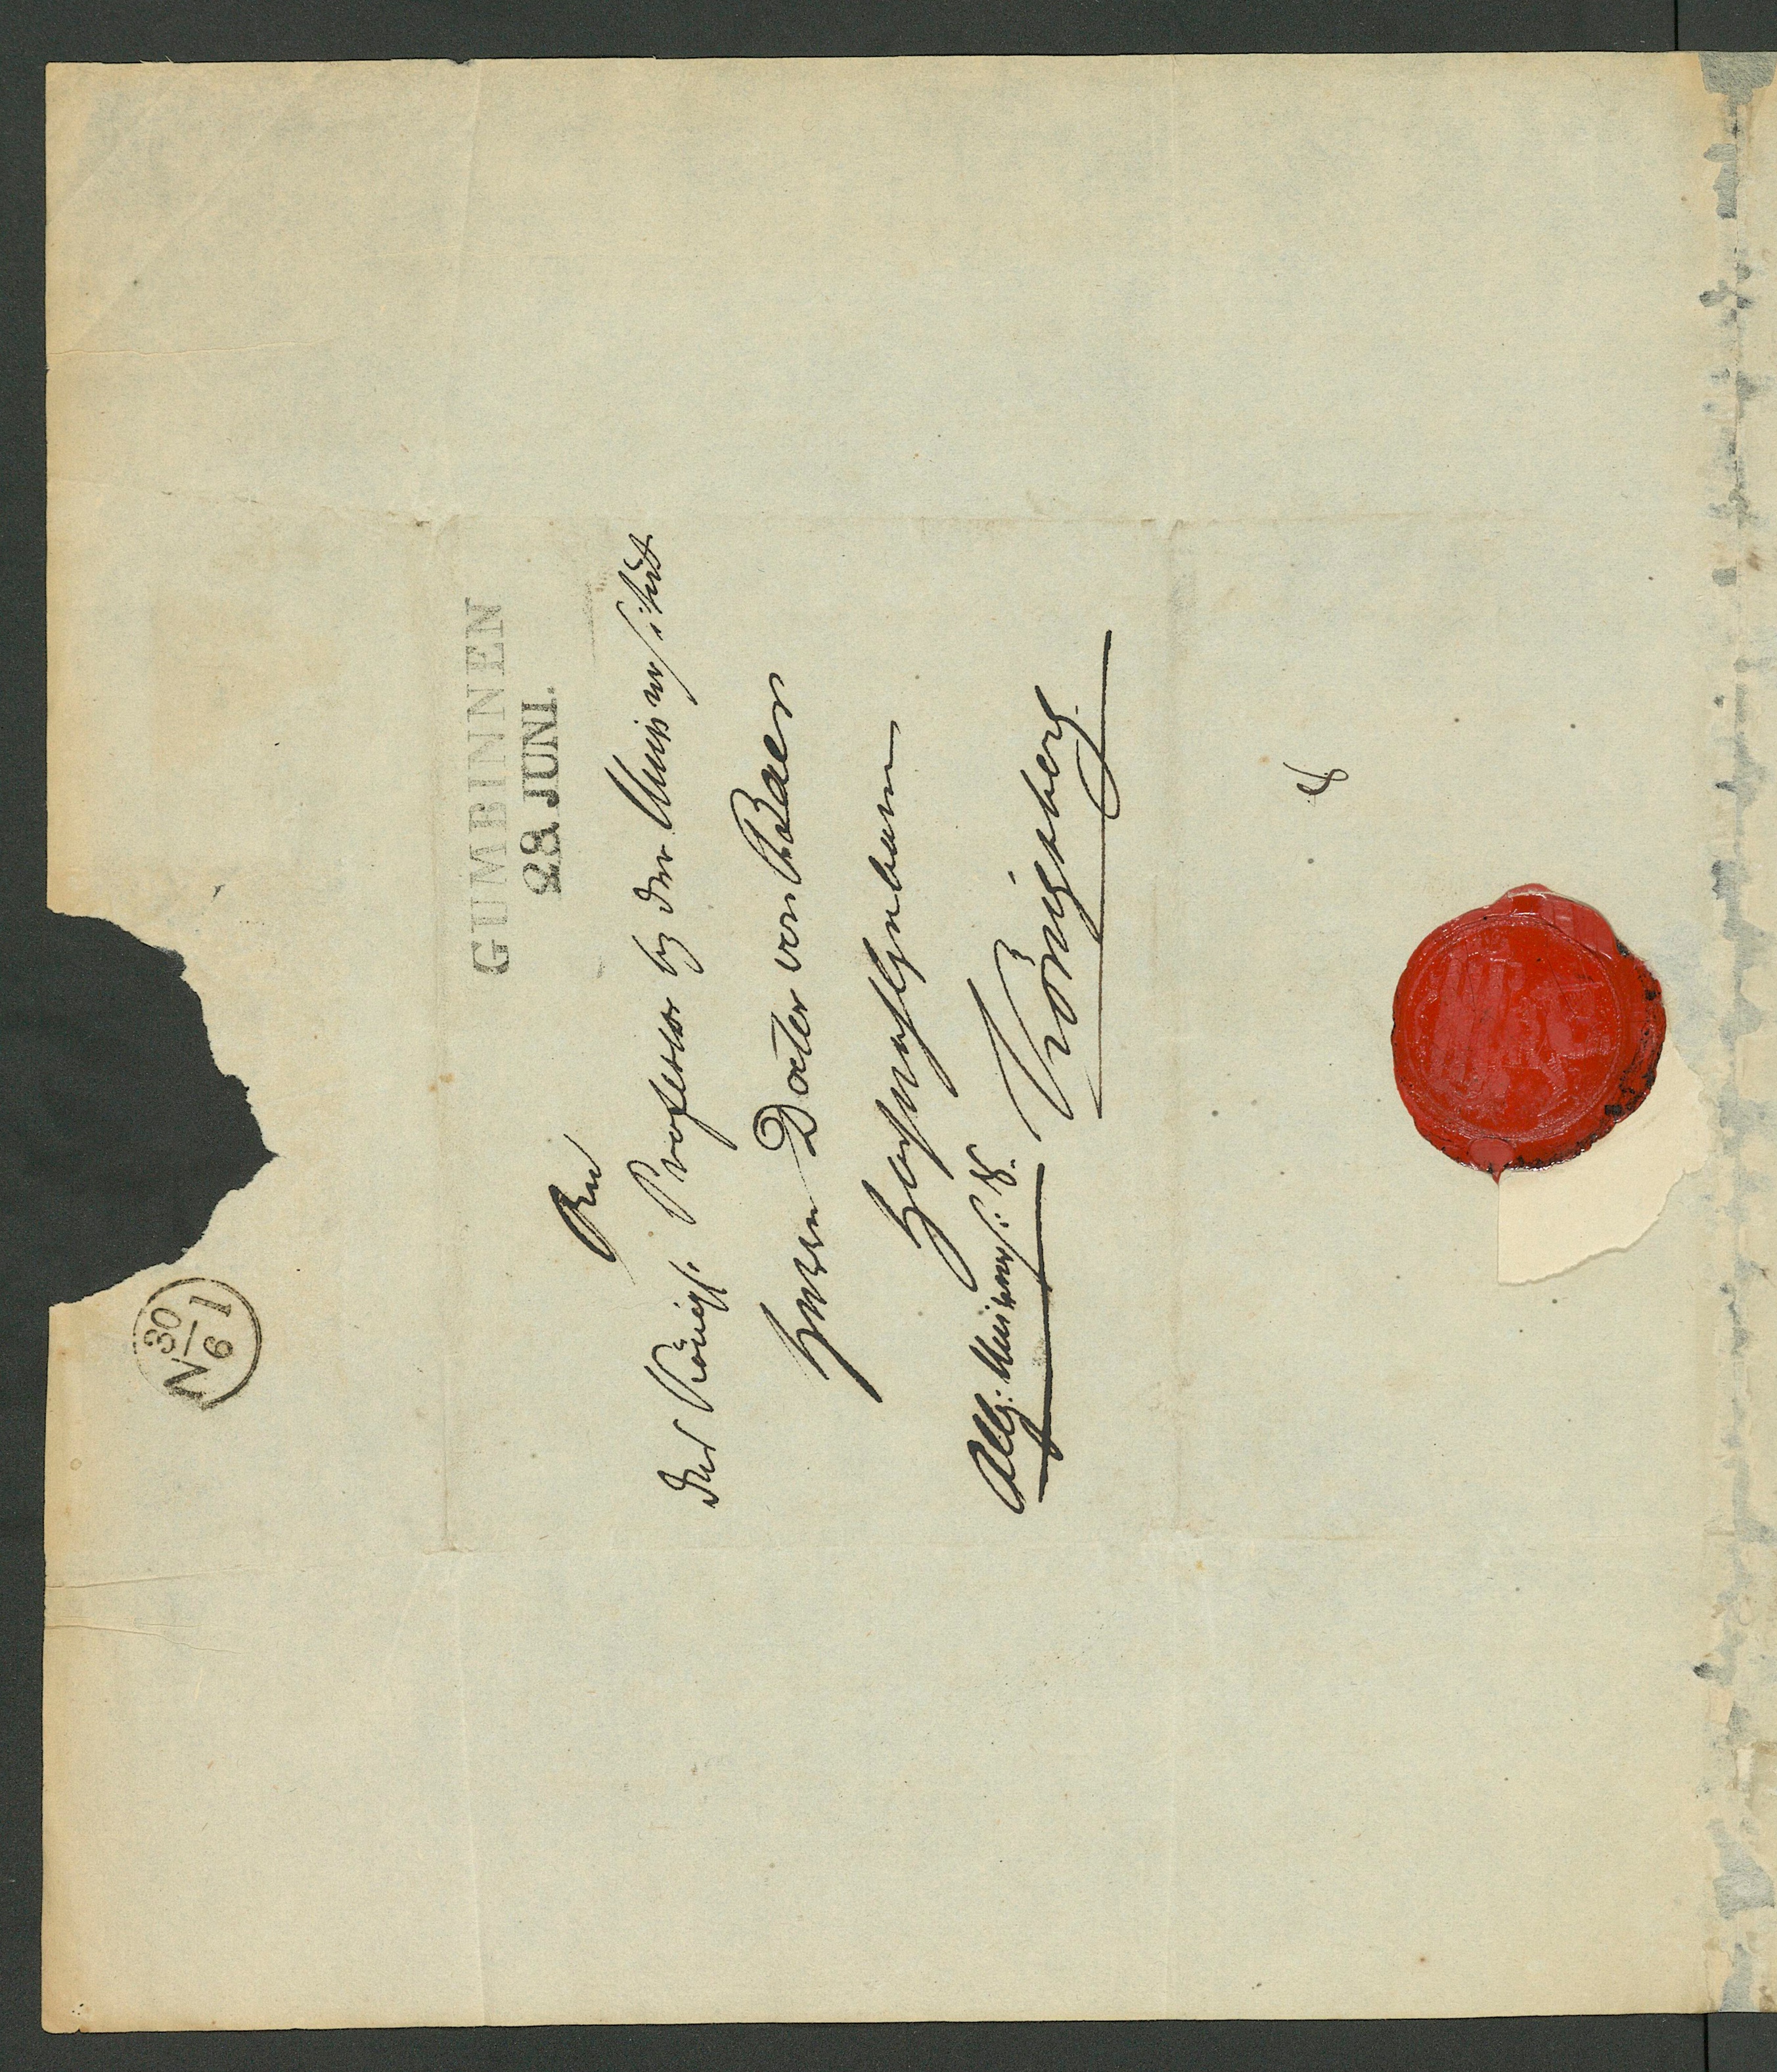 GUMBINNEN
29. JUNI.
An
den Königl. Professor bey der Universitaet
Herrn Docter von Baer
Hochwohlgeboren
Allg: Univers: S.
Königsberg.
N 30/6 1